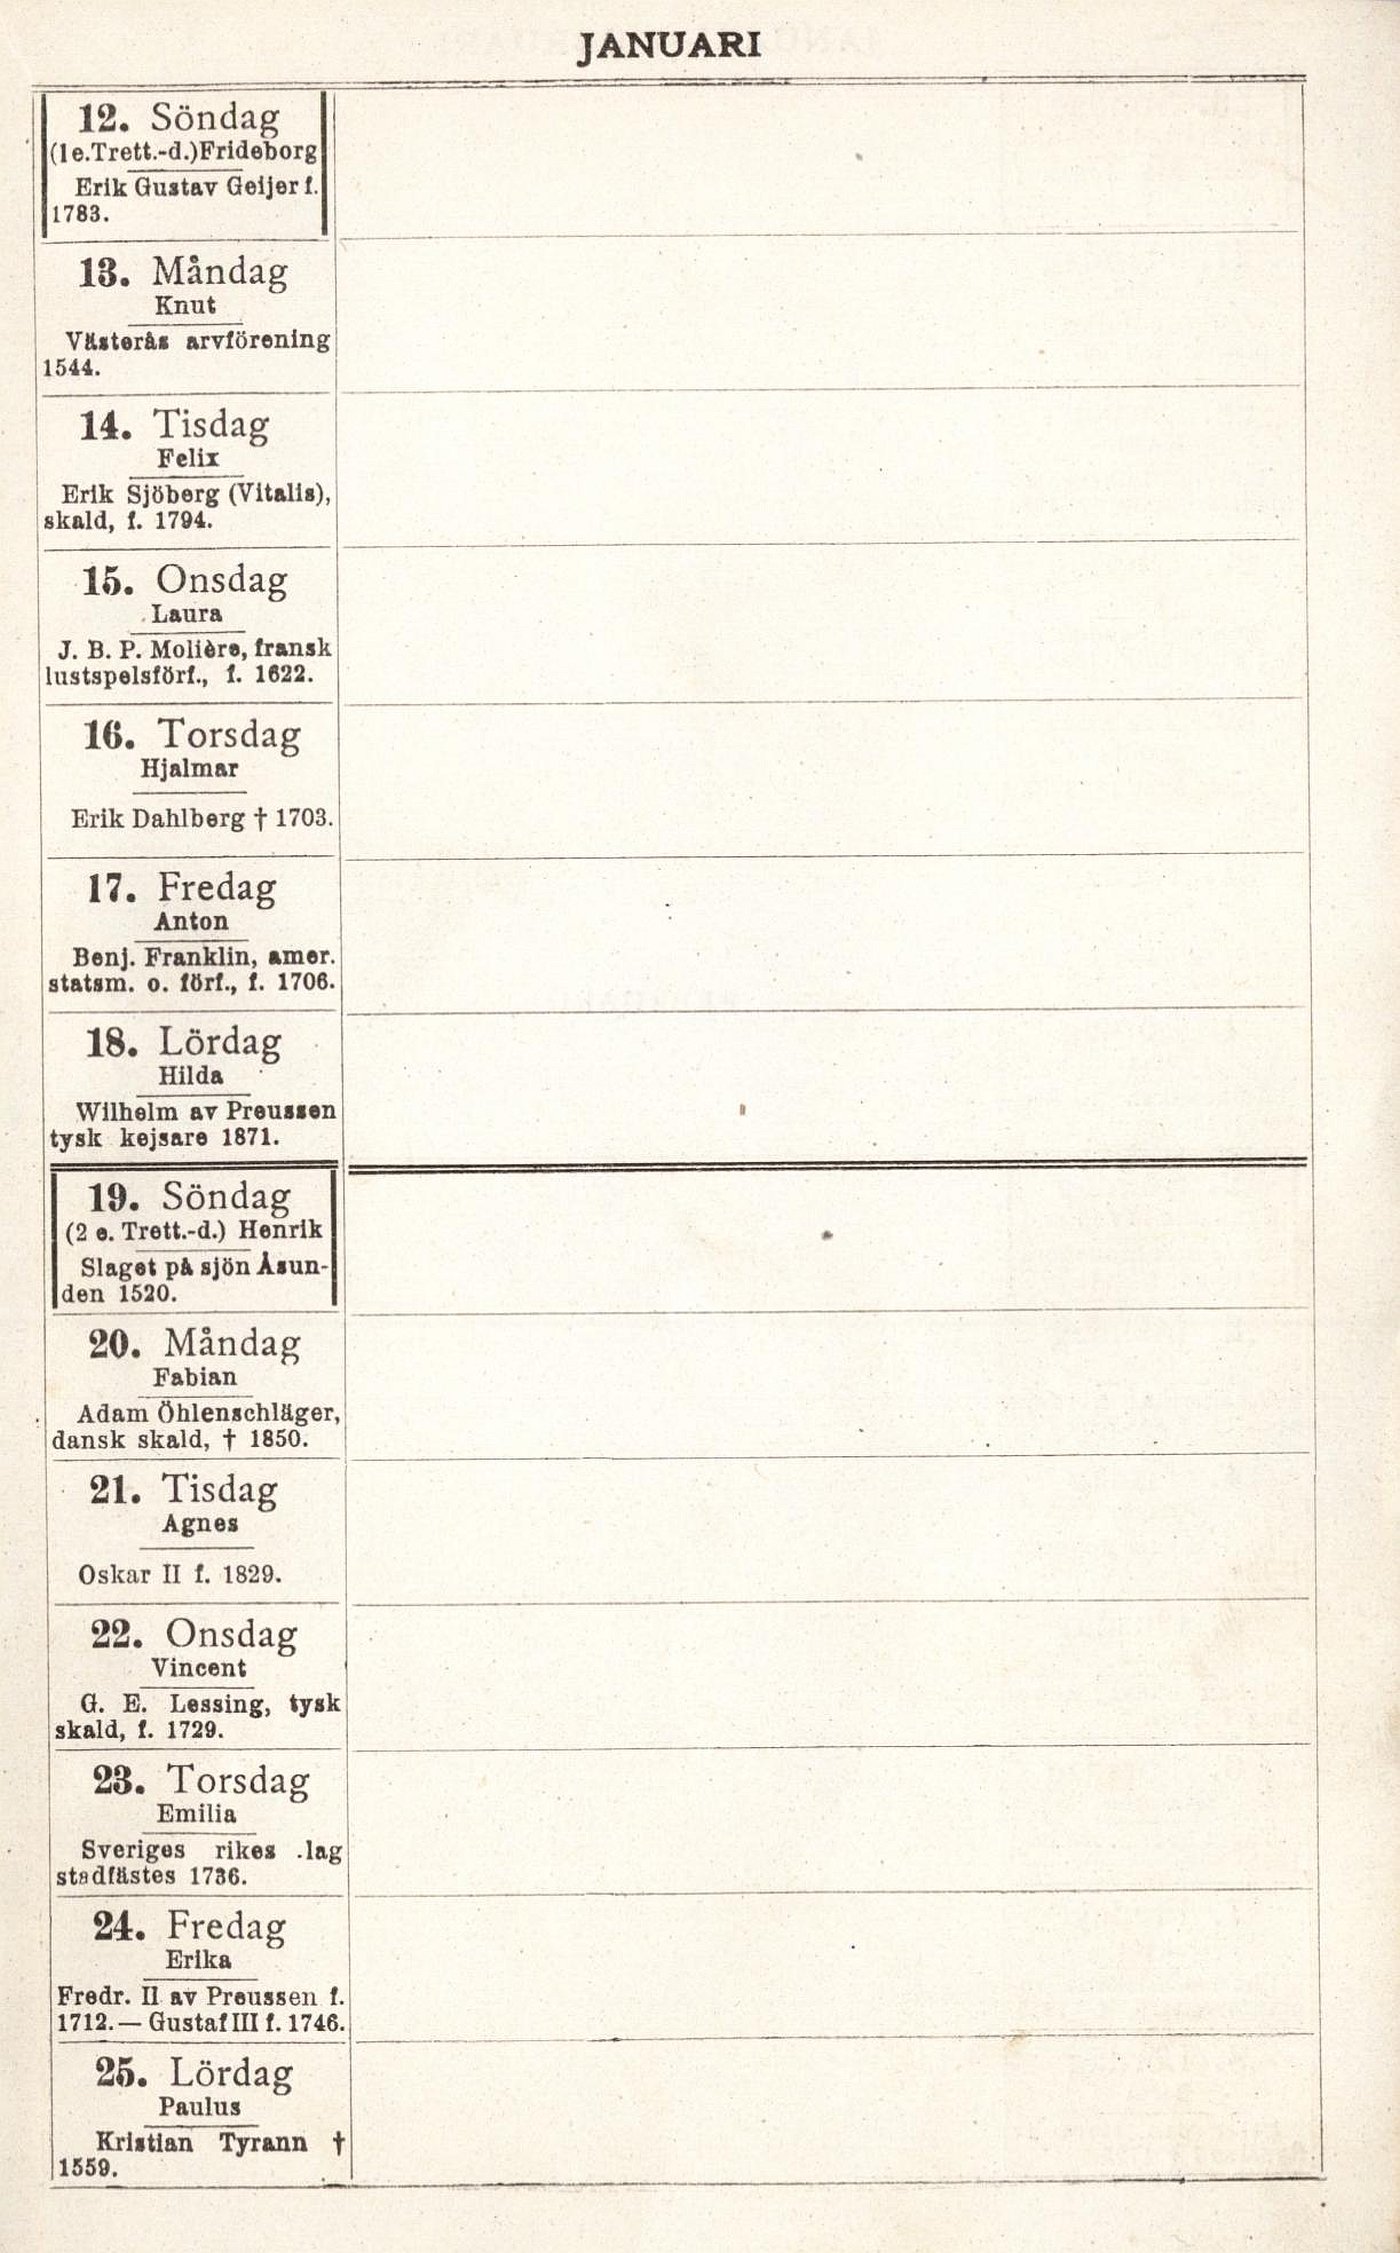 JANUARI
12. Söndag
(1 e. Trett.-d.) Frideborg
Erik Gustav Geijer f.
1783.
13. Måndag
Knut
Västerås arvförening
1544.
14. Tisdag
Felix
Erik Sjöberg (Vitalis),
skald, f. 1794.
15. Onsdag
Laura
J. B. P. Molière, fransk
lustspelsförf., f. 1622.
16. Torsdag
Hjalmar
Erik Dahlberg † 1703.
17. Fredag
Anton
Benj. Franklin, amer.
statsm. o. förf., f. 1706.
18. Lördag
Hilda
Wilhelm av Preussen
tysk kejsare 1871.
19. Söndag
(2 e. Trett.-d.) Henrik
Slaget på sjön Åsun-
den 1520.
20. Måndag
Fabian
Adam Öhlenschläger,
dansk skald, † 1850.
21. Tisdag
Agnes
Oskar II f. 1829.
22. Onsdag
Vincent
G. E. Lessing, tysk
skald, f. 1729.
23. Torsdag
Emilia
Sveriges rikes lag
stadfästes 1736.
24. Fredag
Erika
Fredr. II av Preussen f.
1712. — Gustaf III f. 1746.
25. Lördag
Paulus
Kristian Tyrann †
1559.